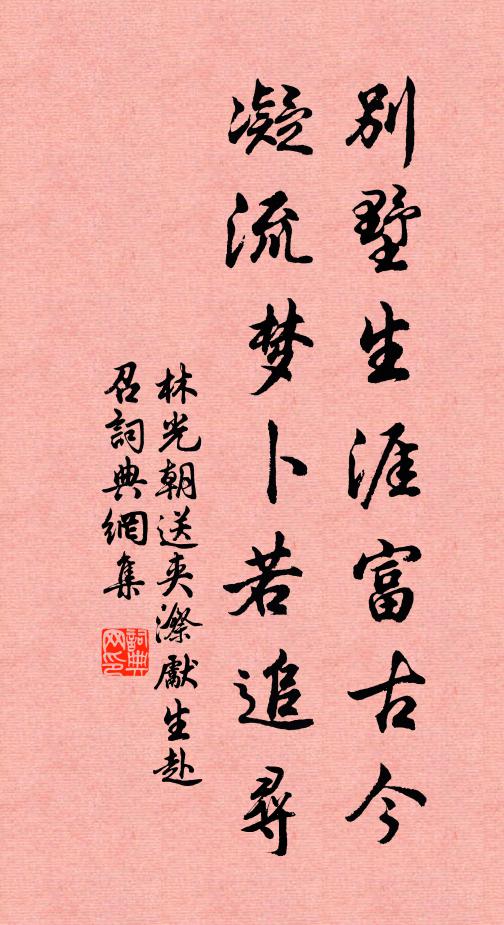 别墅生涯富古今
凝流梦卜若追尋
林光朝送夾漈獻生赴
召詞典網集
詞典网印